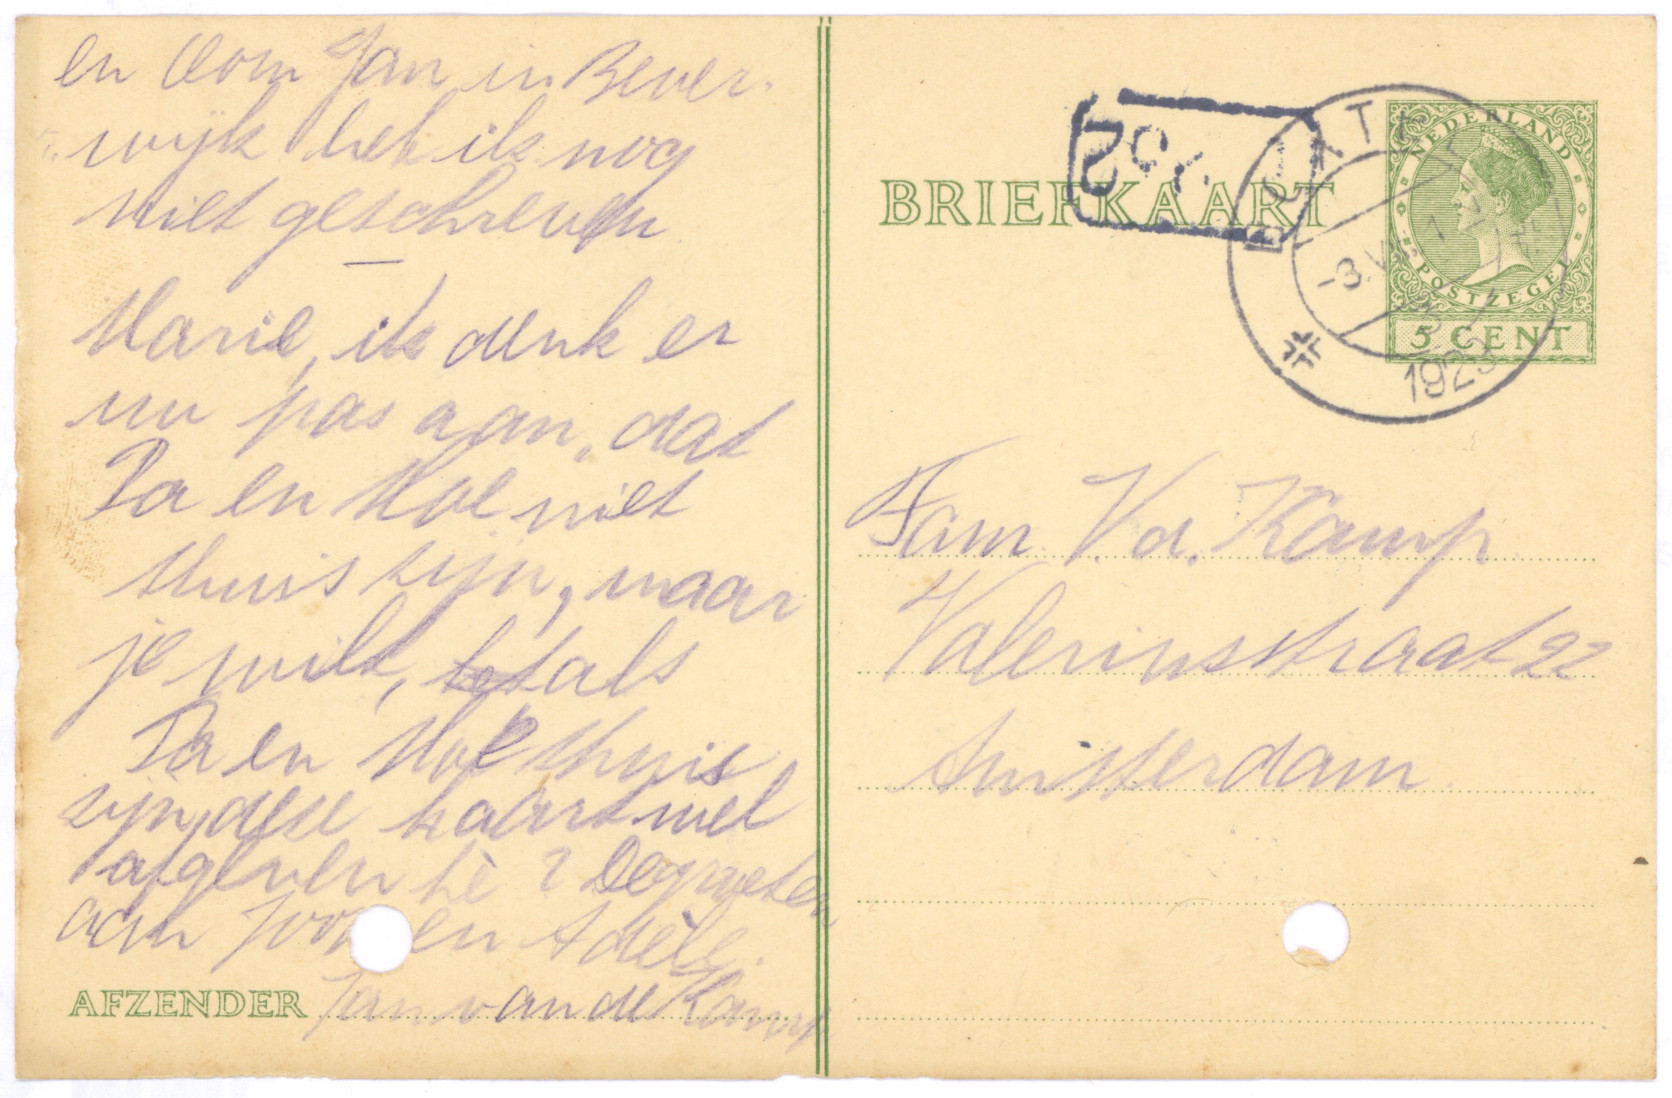 en Oom Jan in Bever-
wijk heb ik nog
niet geschreven.
Marie, ik denk er
nu pas aan, dat
Pa en Moe niet
thuis zijn, maar
je wilt, als
Pa en Moe thuis
zijn, deze kaart wel
afgeven hè? De groeten
aan Joop en Adèle.
AFZENDER Jan van de Kamp
BRIEFKAART
NEDERLAND
POSTZEGEL
5 CENT
-3.VII
1923
Fam. V. d. Kamp.
Valeriusstraat 22
Amsterdam.